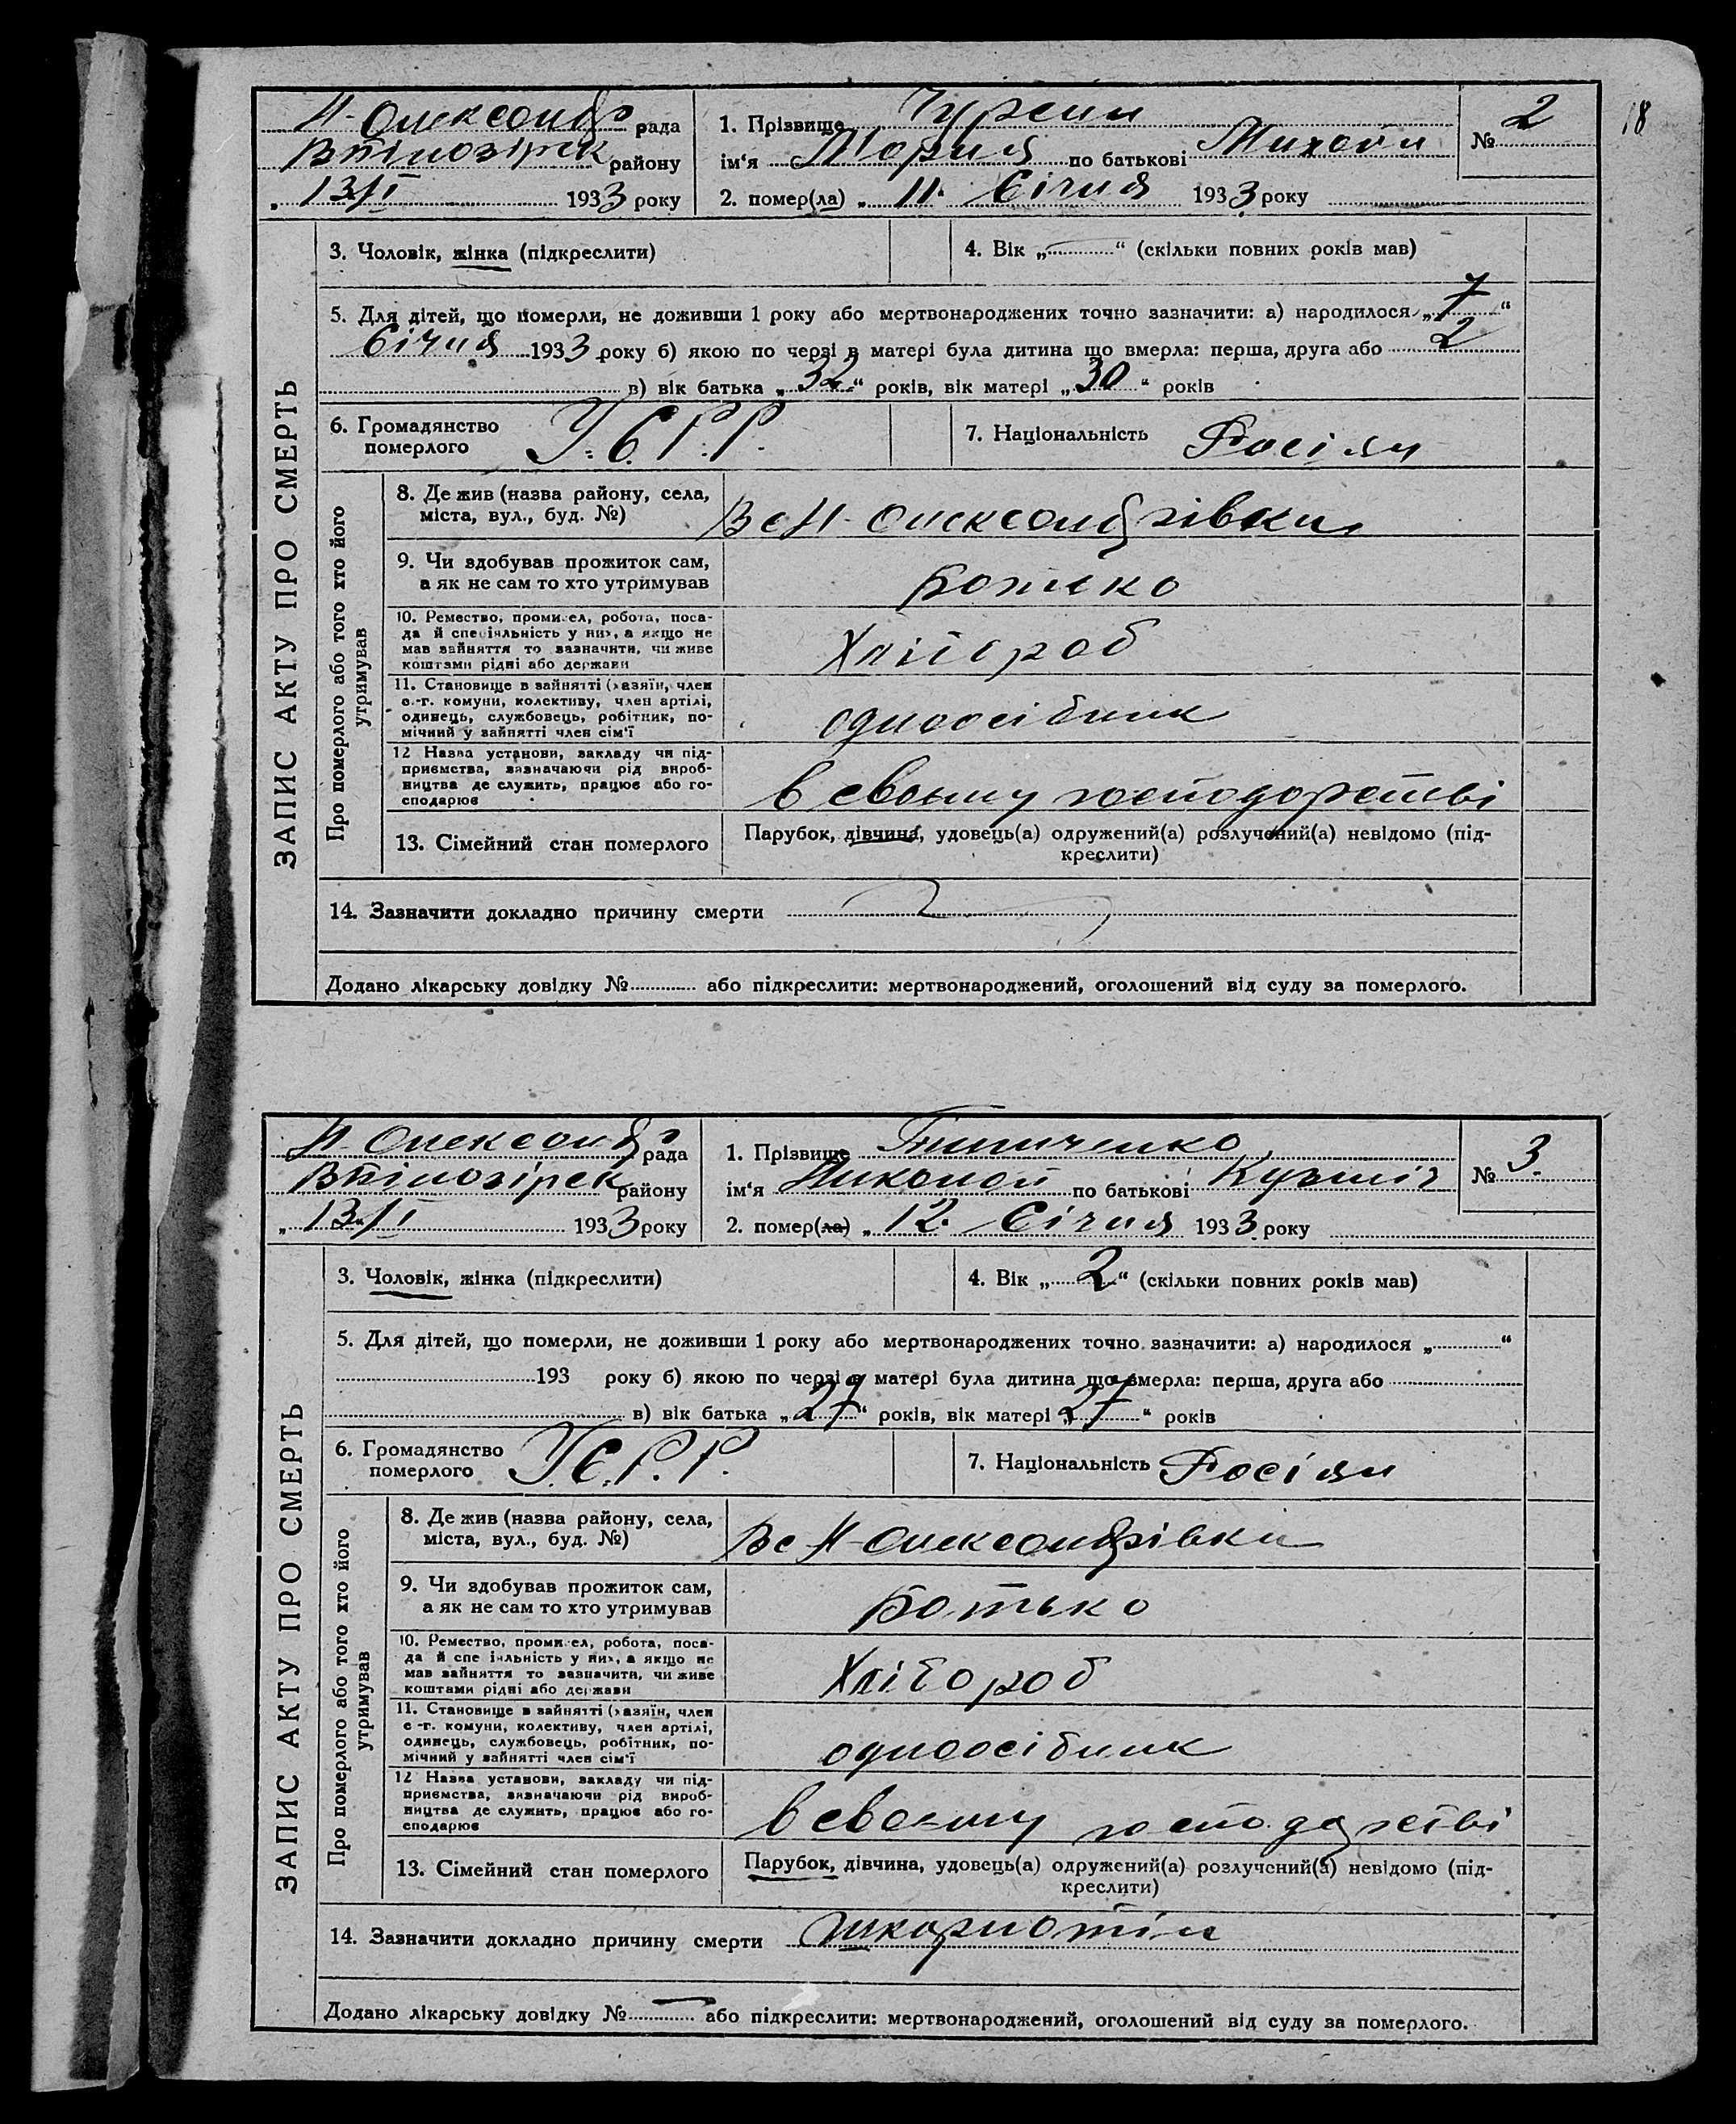 18
Н-Олександр рада
Білолозірск району
„ 13/I 1933 року
1. Прізвище Чурсин
ім‘я Мария по батькові Михайл
2. помер(ла) „ 11. Січня 1933 року
№ 2
3. Чоловік, жінка (підкреслити)
4. Вік „ “ (скільки повних років мав)
5. Для дітей, що померли, не доживши 1 року або мертвонароджених точно зазначити: а) народилося „ 7 “
Січня 1933 року б) якою по черзі в матері була дитина що вмерла: перша, друга або 2
в) вік батька „ 32 “ років, вік матері „ 30 “ років
6. Громадянство
померлого У.С.Р.Р.
7. Національність Росіян
ЗАПИС АКТУ ПРО СМЕРТЬ
Про померлого або того хто його
утримував
8. Де жив (назва району, села,
міста, вул., буд. №) В с Н-Олександрівки
9. Чи здобував прожиток сам,
а як не сам то хто утримував Батько
10. Ремество, промисел, робота, поса-
да й спеціяльність у них, а якщо не
мав зайняття то зазначити, чи живе
коштами рідні або держави Хлібороб
11. Становище в зайнятті (хазяїн, член
с.-г. комуни, колективу, член артілі,
одинець, службовець, робітник, по-
мічний у зайнятті член сім‘ї одноосібник
12 Назва установи, закладу чи під-
приємства, зазначаючи рід вироб-
ництва де служить, працює або го-
сподарює в своьму господорстві
13. Сімейний стан померлого Парубок, дівчина, удовець(а) одружений(а) розлучений(а) невідомо (під-
креслити)
14. Зазначити докладно причину смерти
Додано лікарську довідку № або підкреслити: мертвонароджений, оголошений від суду за померлого.
Н-Олександр рада
району
„ 13/I 1933 року
1. Прізвище
ім‘я Николай по батькові Кузьміч
2. помер(ла) „ 12. Січня 1933 року
№ 3.
3. Чоловік, жінка (підкреслити)
4. Вік „ 2 “ (скільки повних років мав)
5. Для дітей, що померли, не доживши 1 року або мертвонароджених точно зазначити: а) народилося „ “
193 року б) якою по черзі в матері була дитина що вмерла: перша, друга або
в) вік батька „ 27 “ років, вік матері „ 27 “ років
6. Громадянство
померлого У.С.Р.Р.
7. Національність Росіян
ЗАПИС АКТУ ПРО СМЕРТЬ
Про померлого або того хто його
утримував
8. Де жив (назва району, села,
міста, вул., буд. №) В с Н-Олександрівки
9. Чи здобував прожиток сам,
а як не сам то хто утримував Батько
10. Ремество, промисел, робота, поса-
да й спеціяльність у них, а якщо не
мав зайняття то зазначити, чи живе
коштами рідні або держави Хлібороб
11. Становище в зайнятті (хазяїн, член
с.-г. комуни, колективу, член артілі,
одинець, службовець, робітник, по-
мічний у зайнятті член сім‘ї одноосібник
12 Назва установи, закладу чи під-
приємства, зазначаючи рід вироб-
ництва де служить, працює або го-
сподарює в своьму господарстві
13. Сімейний стан померлого Парубок, дівчина, удовець(а) одружений(а) розлучений(а) невідомо (під-
креслити)
14. Зазначити докладно причину смерти шкарлотін
Додано лікарську довідку № — або підкреслити: мертвонароджений, оголошений від суду за померлого.